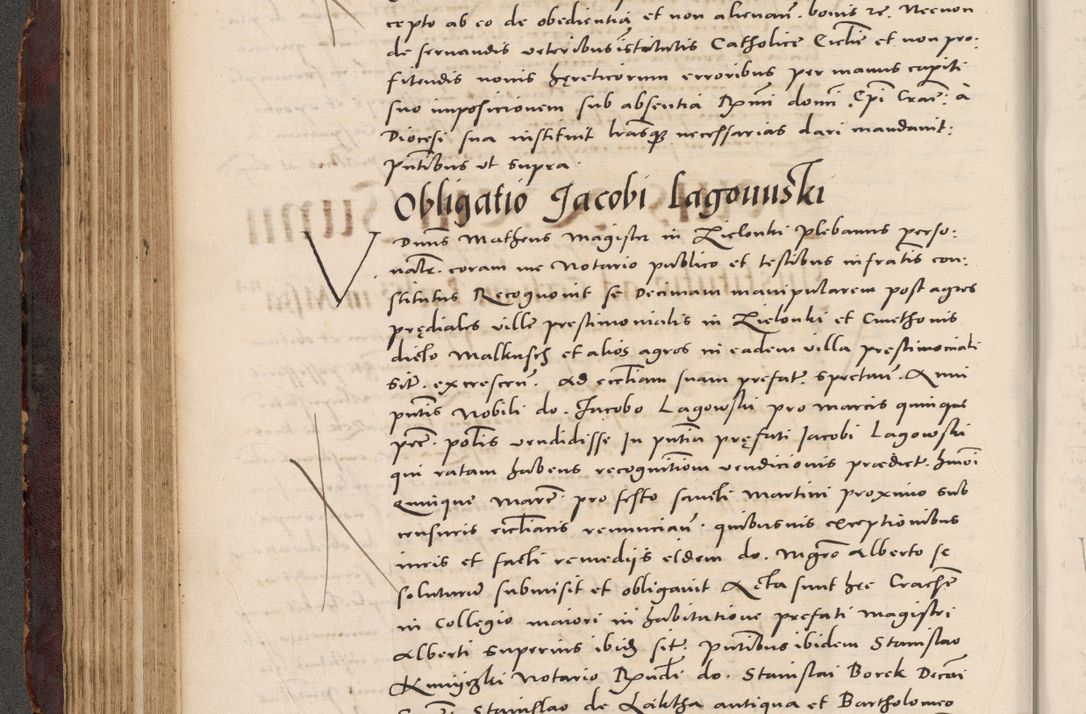 cepto ab eo de obedientia et non alienañ. bonis re. Necnon
de servandis veteribus istitutis Catholice Ecclie et non pro:
fitendis novis hęreticorum erroribus per manus capiti
suo imposicionem sub absentia Rxmi domi Epi Craĉ: à
Diocesi sua instituit lrasque necessarias dari mandavit:
pñtibus ut supra.
Obligatio Jacobi Lagowski
Dnus Matheus Magister in Zielonki plebanus perso:
nalr. coram me Notario publico et testibus infratis con:
stitutus Recognovit se Decimam manipularem post agros
prędiales ville prestimonialis in Zielonki et Cmethonis
dicto Malkusch et alios agros in eadem villa prestimoniale
sit. excrescen̄. ad eccliam suam prefat. spectañ. Anni
pñtis Nobili do. Jacobo Lagowski pro marcis quinque
pec. polis vendidisse In pñtia pręfati Jacobi Lagowski
qui ratam habens recognitiom vendicionis prædict. hmoi
Quinque marc. pro festo sancti Martini proximo sub
censuris ecclíacis renuncian̄. quibusvis exceptionibus
iuris et facti remedijs eidem do. Mgro Alberto se
soluturum submisit et obligavit Acta sunt hec Cracĥe
in Collegio maiori in habitatione prefati magistri
Alberti Superius ibid. sit. pñtibus ibidem Stanislao
notario Rxndi do. Stanislai Borek Decani
Stanislao de antiqua et Bartholomeo